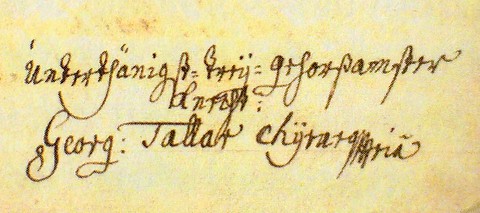 Unterthänigst=treij=gehorßambster
knecht:
Georg: Tallar Chÿrurg